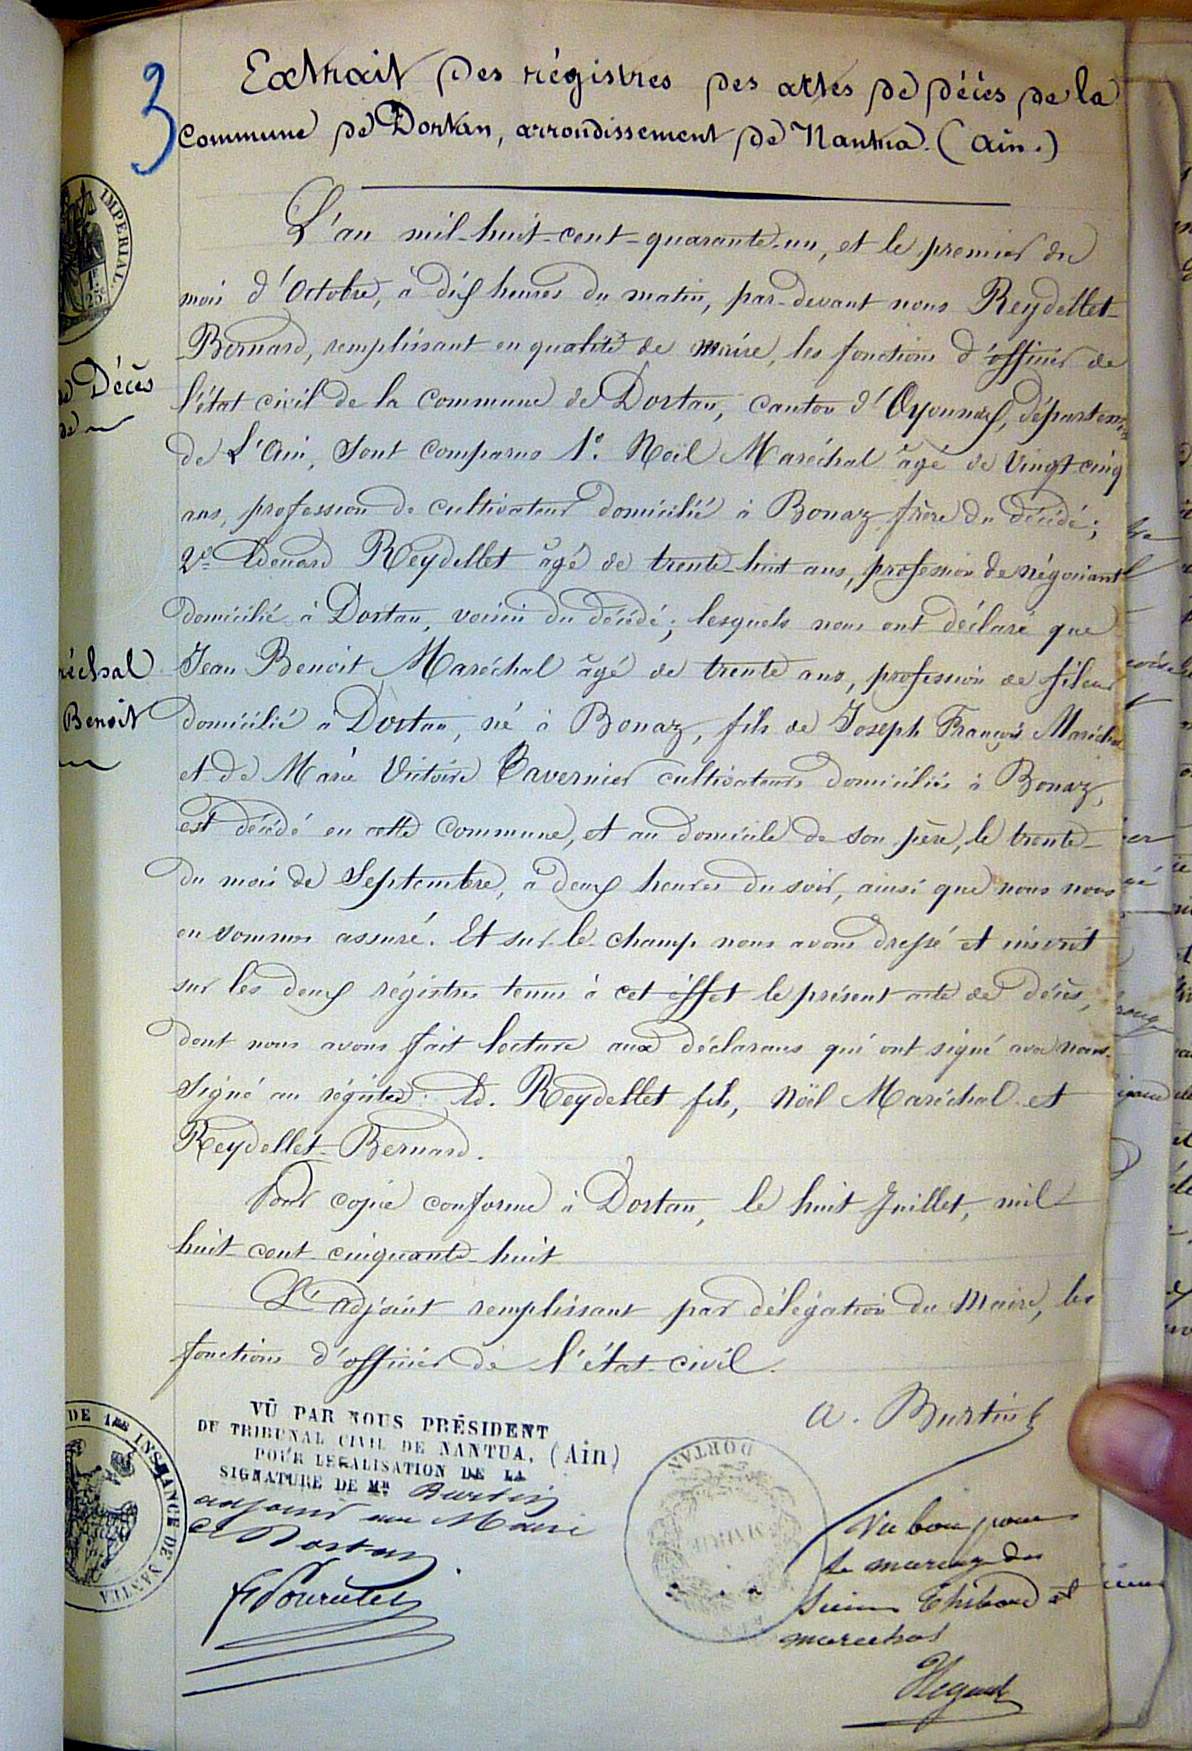 3
Extrait des régistres des actes de décès de la
commune de Dortan, arrondissement de Nantua. (Ain.)
IMPERIAL
Décès
L'an mil-huit-cent-quarante-un, et le premier du
mois d'Octobre, à dix heures du matin, par-devant nous Reydellet-
Bernard, remplissant en qualité de maire, les fonctions d'officier de
l'état civil de la Commune de Dortan, canton d'Oyonnax, départem
de L'Ain, sont comparus 1° Noël Maréchal âgé de vingt cinq
ans, profession de cultivateur domicilié à Bonaz, frère du décédé;
2° Edouard Reydellet âgé de trente-huit ans, profession de négociant
domicilié à Dortan, voisin du décédé; lesquels nous ont déclaré que
réchal
Jean Benoit Maréchal âgé de trente ans, profession de fileur
Benoit
domicilié à Dortan, né à Bonaz, fils de Joseph François Maréchal
et de Marie Victoire Tavernier cultivateurs domiciliés à Bonaz,
est décédé en cette Commune, et au domicile de son père, le trente
du mois de Septembre, à deux heures du soir, ainsi que nous nous
en sommes assuré. Et sur-le-champ nous avons dressé et inscrit
sur les deux régistres tenus à cet effet le présent acte de décès,
dont nous avons fait lecture aux déclarans qui ont signé avec nous.
Signé au régistre: Ed. Reydellet fils, Noël Maréchal et
Reydellet-Bernard.
Pour copie conforme à Dortan, le huit Juillet, mil-
huit-cent-cinquante-huit
L'adjoint remplissant par délégation du Maire, les
fonctions d'officier de l'état-civil.
A. Burtin
VÛ PAR NOUS PRÉSIDENT
DU TRIBUNAL CIVIL DE NANTUA, (Ain)
POUR LEGALISATION DE LA
SIGNATURE DE MR Burtin
adjoint au Maire
de Dortan
DE 1RE INSTANCE DE NANTUA
DORTAN
MAIRIE
AIN
Vu bon pour
le mariage des
sieurs Thibaud et
marechal